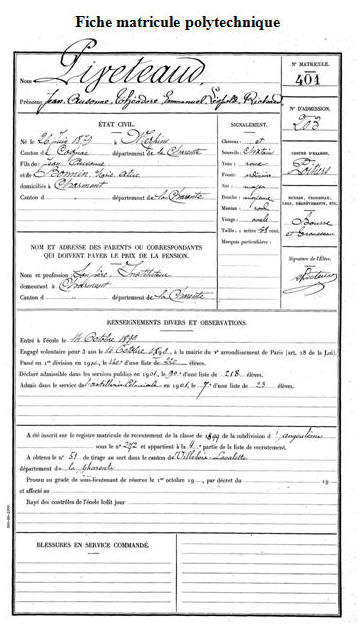 Fiche matricule polytechnique
Nom Piveteaud
Prénoms Jean Ausonne Théodore Emmanuel Léopold Richard
N° MATRICULE.
401
N° D'ADMISSION.
203
CENTRE D'EXAMEN.
Poitiers
BOURSE, TROUSSEAU,
Bourse
et trousseau
Signature de l'Élève.
ÉTAT CIVIL.
Né le 26 Juin 1879 à Merpins
Canton d Cognac département de la Charente
Fils de Jean Ausonne
et de Bonnin Marie
domiciliés à Charmant
Canton d département de la Charente
SIGNALEMENT.
Cheveux :
Sourcils :
Yeux :
Front : ordinaire
Nez : moyen
Bouche : moyenne
Menton : rond
Visage : ovale
Taille : 1 mètre 68 cent.
Marques particulières :
NOM ET ADRESSE DES PARENTS OU CORRESPONDANTS
QUI DOIVENT PAYER LE PRIX DE LA PENSION.
Nom et profession Son père Instituteur
demeurant à Charmant
Canton d département de la Charente
RENSEIGNEMENTS DIVERS ET OBSERVATIONS.
Entré à l'école le 14 Octobre
Engagé volontaire pour 3 ans le Octobre à la mairie du V° arrondissement de Paris (art. 28 de la Loi).
Passé en 1re division en d'une liste de 220 élèves.
Déclaré admissible dans les services publics en 1901, le 90° d'une liste de 218 élèves.
Admis dans le service de l'artillerie Coloniale en 1901, le 7° d'une liste de 23 élèves.
A été inscrit sur le registre matricule de recrutement de la classe de 1899 de la subdivision d'Angoulême
sous le n° 272 et appartient à la partie de la liste de recrutement.
A obtenu le n° 51 de tirage au sort dans le canton de Villebois-Lavalette
département de la Charente
Promu au grade de sous-lieutenant de réserve le 1er octobre 19 , par décret du 19
et affecté au
Rayé des contrôles de l'école ledit jour
BLESSURES EN SERVICE COMMANDÉ.